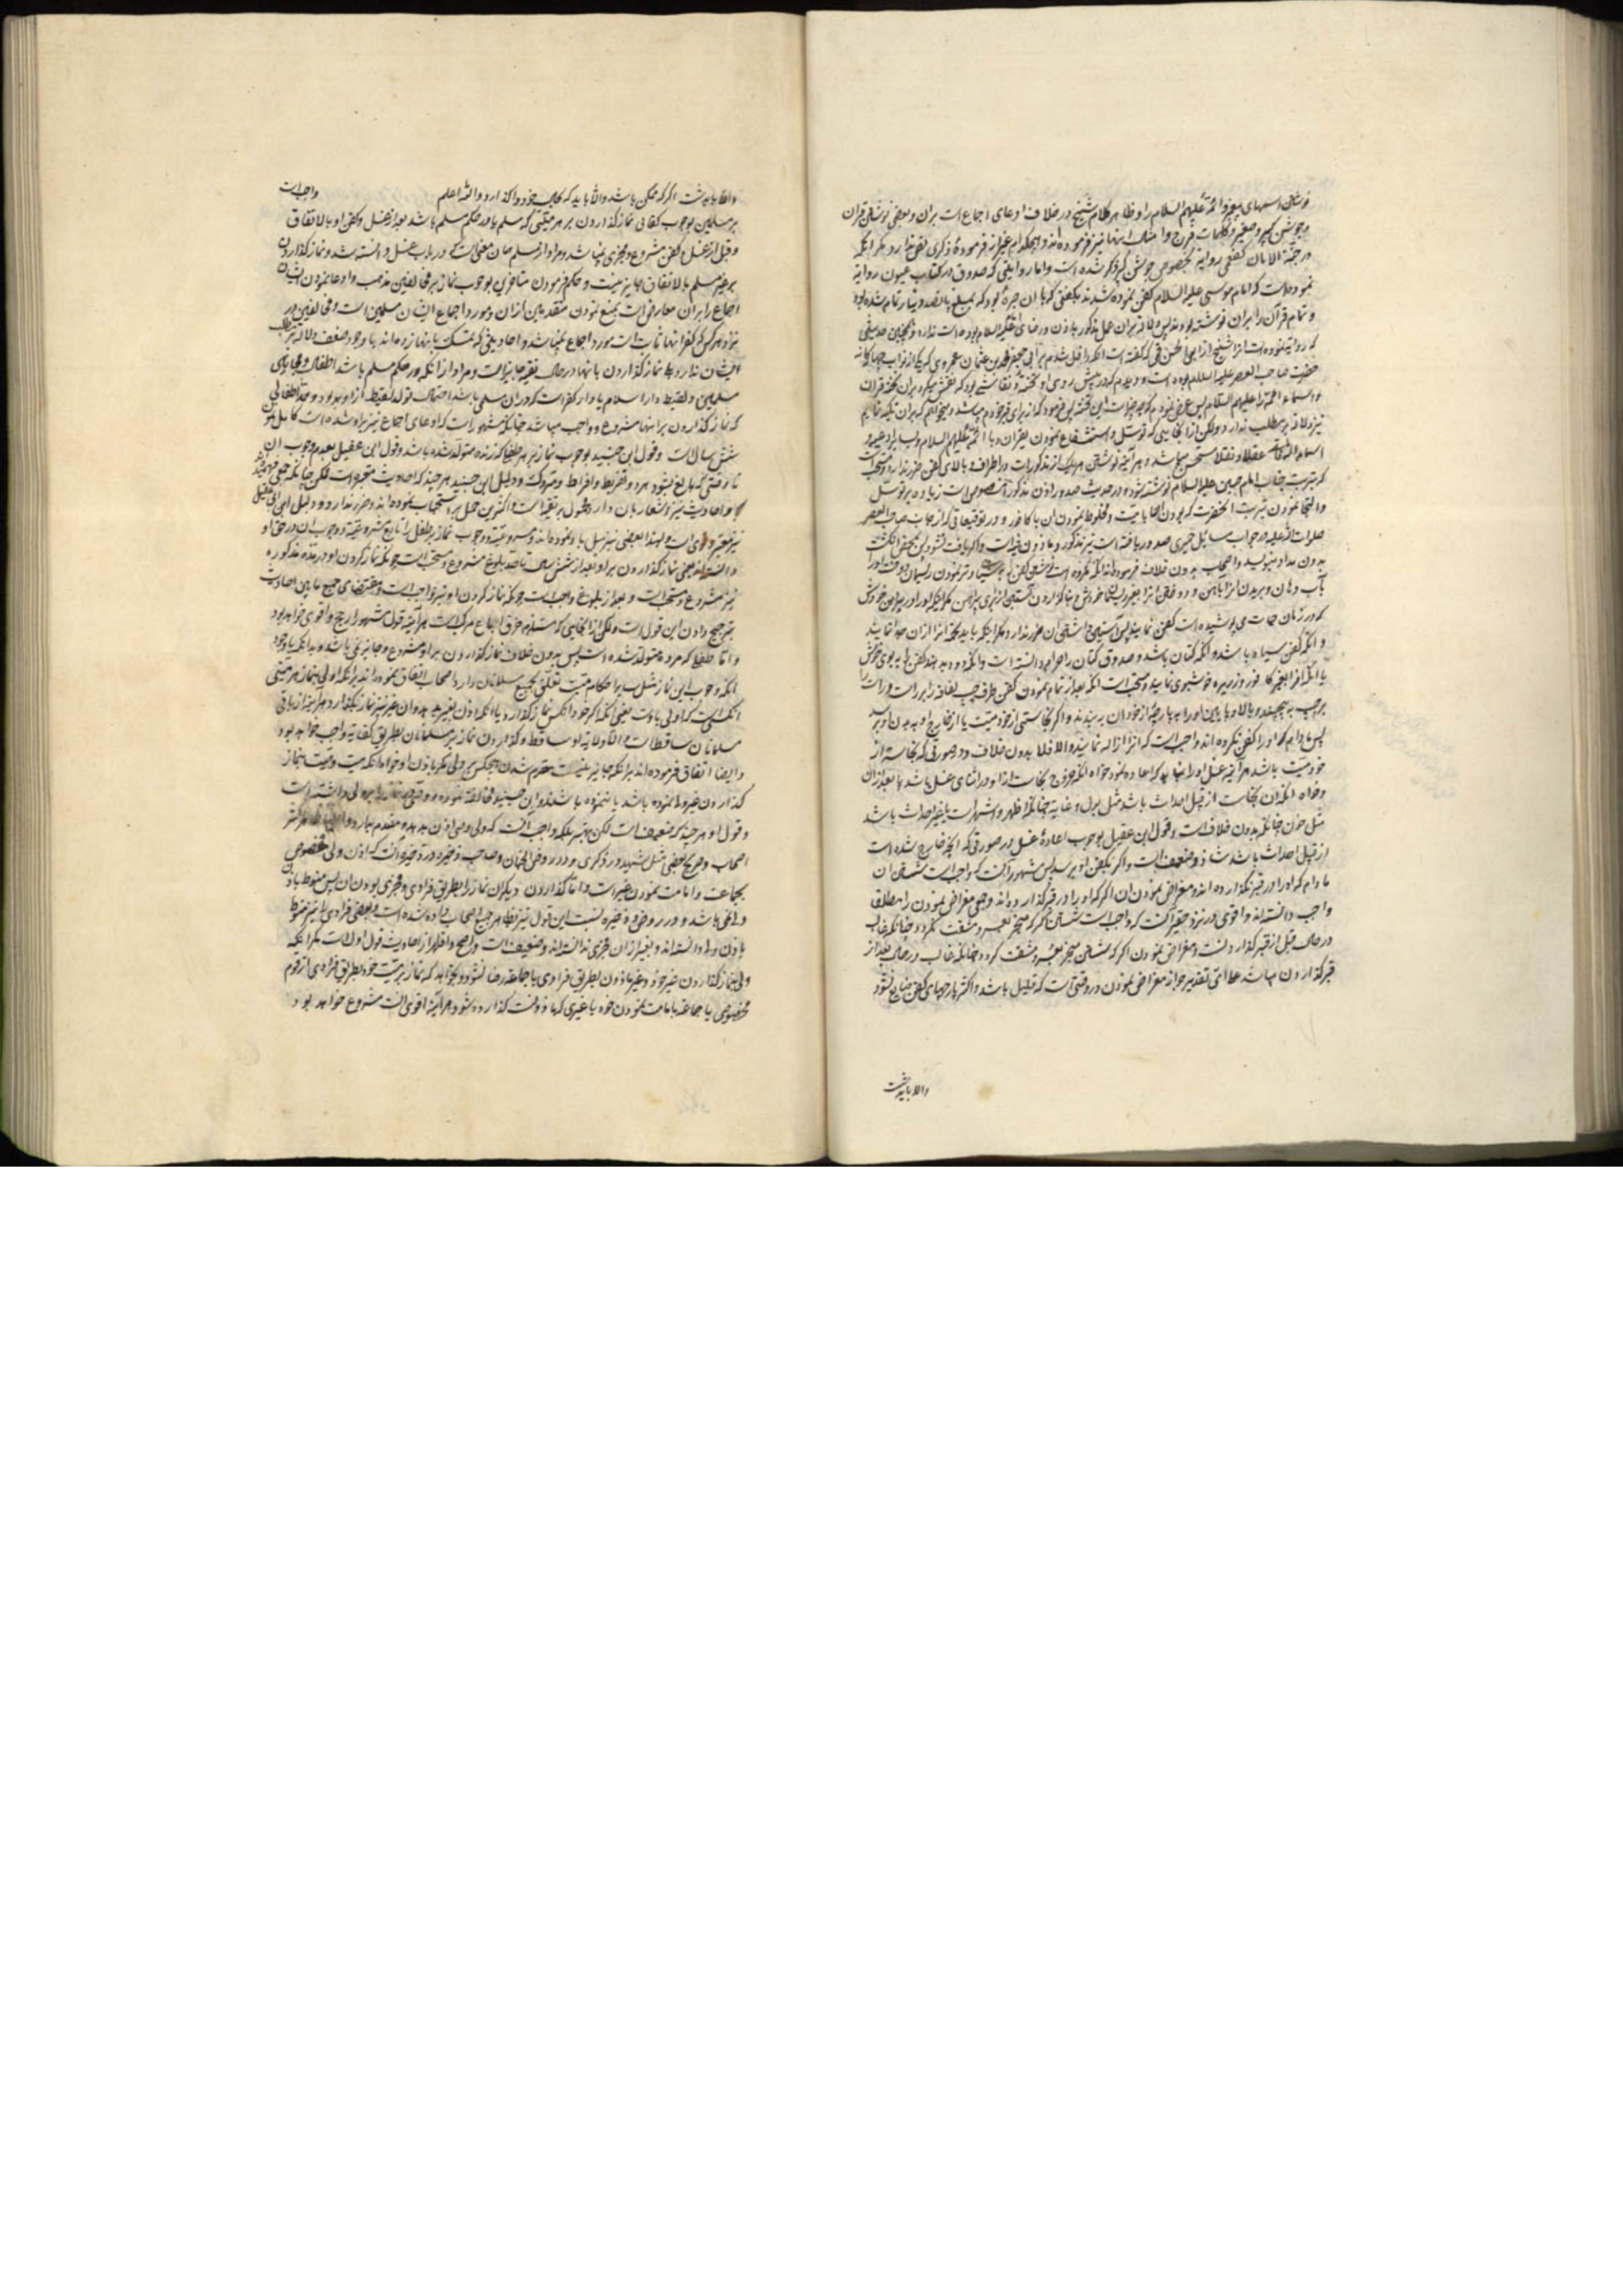 نوشتن اسمهای پیغمبر و ائمه علیهم السلام را و ظاهر کلام شیخ در خلاف ادعای اجماع است بران و بعضی نوشتن قران
و جوشن کبیر و صغیر و کلمات فرج و امثال اینها نیز فرموده اند و هیچکدام غیر از فرموده ذکری نص ندارد مگر آنکه
در جنة الامان کفعمی روایة بخصوص جوشن کبیر ذکر شده است و اما روایتی که صدوق در کتاب عیون روایة
نموده است که امام موسی علیه السلام کفن نموده شدند بکفنی که با ان حبرهٔ بود که بمبلغ پانصد دینار تمام شده بود
و تمام قرآن را بران نوشته بودند پس دلالة بران عمل مذکور باذن و رضای ائمه علیهم السلام بوده است ندارد و همچنین حدیثی
که روایة نموده است انرا شیخ از ابی الحسن قمی که گفته است آنکه داخل شدم بر ابی جعفر محمد بن عثمان عمروی که یکی از نواب چهارگانه
حضرت صاحب العصر علیه السلام بوده است و دیدم که در پیش روی او تخته و نقاشی بود که نقش میکرد بران تخته قران
و اسماء ائمه را علیهم السلام پس عرض نمودم که چه چیز است این تخته پس فرمود که از برای قبر خودم میباشد و میخواهم که بران تکیه نمایم
نیز دلالة بر مطلب ندارد و لکن از آنجایی که توسل و استشفاع نمودن بقران و با ائمه علیهم السلام و سایر ادعیه و
اسماء الله تعالی عقلا و نقلا مستحسن میباشد و هر آینه نوشتن هر یک از مذکورات در اطراف و بالای کفن ضرر ندارد و مستحب است
که بتربت جناب امام حسین علیه السلام نوشته شود و در حدیث صدور اذن مذکور آنخصوص است زیاده بر توسل
والتجا نمودن بتربت آنحضرت که بودن انها با میت و مخلوط نمودن ان با کافور در توقیعاتی که از جانب صاحب العصر
صلوات الله علیه در جواب مسایل حمیری صدور یافته است نیز مذکور و ماذون فیه است و اگر یافت نشود پس بمحض انگشت
بدون مداد بنویسد و اصحاب بدون خلاف فرموده اند آنکه مکروه است شق کفن و تر نمودن ریسمان دوخت او را
بآب دهان و بریدن انرا باهن و
که در زمان حیات می پوشیده است کفن نمایند پس آستین داشتن ان ضرر ندارد مگر اینکه باید تکمه انرا ازان جدا نمایند
و آنکه کفن سیاه باشد و آنکه کتان باشد و صدوق کتان را حرام دانسته است و آنکه دود بدهند کفن را به بوی خوش
یا آنکه انرا بغیر کافور و زریره خوشبوی نمایند و مستحب است آنکه بعد از تمام نمودن کفن طرف چپ لفافه را بر راست و راست را
بر چپ به پیچند و بالا و پایین او را به پارچهٔ از خود ان به بندند و اگر نجاستی از خود میت یا از خارج او به بدن او برسد
پس مادام که او را کفن نکرده اند واجب است که انرا ازاله نمایند والا فلا بدون خلاف و در صورتی که نجاسة از
خود میت باشد هر آینه غسل او را نباید که اعاده نمود خواه آنکه خروج نجاست از او در اثنای غسل باشد یا بعد از ان
و خواه آنکه ان نجاست از قبیل احداث باشد مثل بول و غایة چنانکه اظهر و اشهر است یا غیر احداث باشد
مثل خون چنانکه بدون خلاف است و قول ابن عقیل بوجوب اعادهٔ غسل در صورتی که آنچه خارج شده است
از قبیل احداث باشد شاذ و ضعیف است و اگر بکفن او برسد پس مشهور آنست که واجب است شستن ان
مادام که او را در قبر نگذارده اند و مقراض نمودن ان اگر که او را در قبر گذارده اند و جمعی مقراض نمودن را مطلقا
واجب دانسته اند و اقوی در نزد حقیر آنست که واجب است شستن ان اگر که منجر بعسر و مشقت نگردد چنانکه غالب
در حال قبل از قبر گذاردنست و مقراض نمودن اگر که شستن منجر بعسر و مشقت گردد چنانکه غالب در حال بعد از
قبر گذاردن میباشد علی ای تقدیر جواز مقراض نمودن در وقتی است که قلیل باشد و اکثر پارچهای کفن ضایع نشود
والا باید شست
والا باید شست اگر که ممکن باشد والا باید که بحال خود وا گذارد والله اعلم واجب است
بر مسلمین بوجوب کفائی نماز گذاردن بر هر میتی که مسلم یا در حکم مسلم باشد بعد از غسل و کفن او بالاتفاق
و قبل از غسل و کفن مشروع و مجزی نمیباشد و مراد از مسلم همان معنی است که در باب غسل دانسته شد و نماز گذاردن
بر غیر مسلم بالاتفاق جایز نیست و حکم فرمودن متاخرین بوجوب نماز بر مخالفین مذهب و ادعا نمودن ایشان
اجماع را بران معارض است بمنع نمودن متقدمین از ان و مورد اجماع ایشان مسلمین است و مخالفین در
نزد هر کس که کفر انها ثابت است مورد اجماع نمیباشد و احادیثی که تمسک بانها زده اند با وجود ضعف دلالة بر مطلب
ایشان ندارد بلی نماز گذاردن بانها در حال تقیه جایز است و مراد از آنکه در حکم مسلم باشد اطفال و مجانین
مسلمین و لقیط دار اسلام یا دار کفر است که در ان مسلمی باشد احتمال تولد لقیط از او برود و حد اطفالی
که نماز گذاردن بر انها مشروع و واجب میباشد چنانکه مشهور است که ادعای اجماع نیز بر او شده است کامل نمودن
شش سال است و قول ابن جنید بوجوب نماز بر هر طفلی که زنده متولد شده باشد و قول ابن عقیل بعدم وجوب ان
تا وقتی که بالغ نشود هر دو تفریط و افراط و متروک و دلیل ابن جنید هر چند که احادیث معتبره است لکن چنانکه جمعی فرموده اند
و احادیث نیز اشعار بان دارد محمول بر تقیه است و اکثر بن حمل بر استحباب نموده اند و ضرر ندارد و دلیل ابن ابی عقیل
نیز معتبر و قوی است و لهذا بعضی نیز میل باو نموده اند و مشروعیة و وجوب نماز بر طفل را تابع مشروعیة و وجوب ان در حق او
دانسته اند یعنی نماز گذاردن بر او بعد از شش سال تا حد بلوغ مشروع و مستحب است چونکه نماز کردن او در مدة مذکوره
نیز مشروع و مستحب است و بعد از بلوغ واجب است چونکه نماز کردن او نیز واجب است و مقتضای جمع مابین احادیث
ترجیح دادن این قول است و لکن از آنجایی که مستلزم خرق اجماع مرکب است هر آینه قول مشهور ارجح و اقوی خواهد بود
و اما طفلی که مرده متولد شده است پس بدون خلاف نماز گذاردن بر او مشروع و جایز نمی باشد و بدانکه با وجود
آنکه وجوب این نماز مثل سایر احکام میت تعلق بجمیع مسلمانان دارد اصحاب اتفاق نموده اند بر آنکه اولی بنماز هر میتی
آنکسی است که اولی باوست یعنی آنکه اگر خود آنکس نماز گذارد یا آنکه اذن بغیر بدهد و ان غیر نیز نماز بگذارد هر آینه از باقی
مسلمانان ساقط است والا ولایة او ساقط و گذاردن نماز بر مسلمانان بطریق کفایة واجب خواهد بود
و ایضا اتفاق فرموده اند بر آنکه جایز نیست مقدم شدن هیچکس بر ولی مگر باذن او خواه آنکه میت وصیت بنماز
گذاردن غیر ولی نموده باشد یا ننموده باشد و ابن جنید مخالفة نموده و وصی را بر ولی دانسته است
و قول او هر چند که ضعیف است لکن بهتر بلکه واجب آنست که ولی وصی را اذن بدهد و مقدم بدارد
اصحاب و صریح بعضی مثل شهید در ذکری و در روض الجنان و صاحب ذخیره در ذخیره آنست که اذن ولی مخصوص
بجماعت و امامت نمودن غیر است و اما گذاردن دیگران نماز را بطریق فرادی و مجزی بودن ان پس منوط باذن
ولی نمی باشد و در روض و ذخیره نسبت این قول نیز بظاهر جمیع اصحاب داده شده است و بعضی فرادی را نیز منوط
باذن ولی دانسته اند و بغیر از ان مجزی ندانسته اند و ضعیف است و اصح و اظهر از احادیث قول اول است مگر آنکه
ولی بنماز گذاردن غیر خود و غیر ماذون بطریق فرادی یا جماعة رضا نشود و بخواهد که نماز بر میت خود بطریق فرادی از قوم
مخصوص یا جماعة بامامت نمودن خود یا غیری که ماذونست گذارده شود هر آینه اقوی آنست مشروع خواهد بود